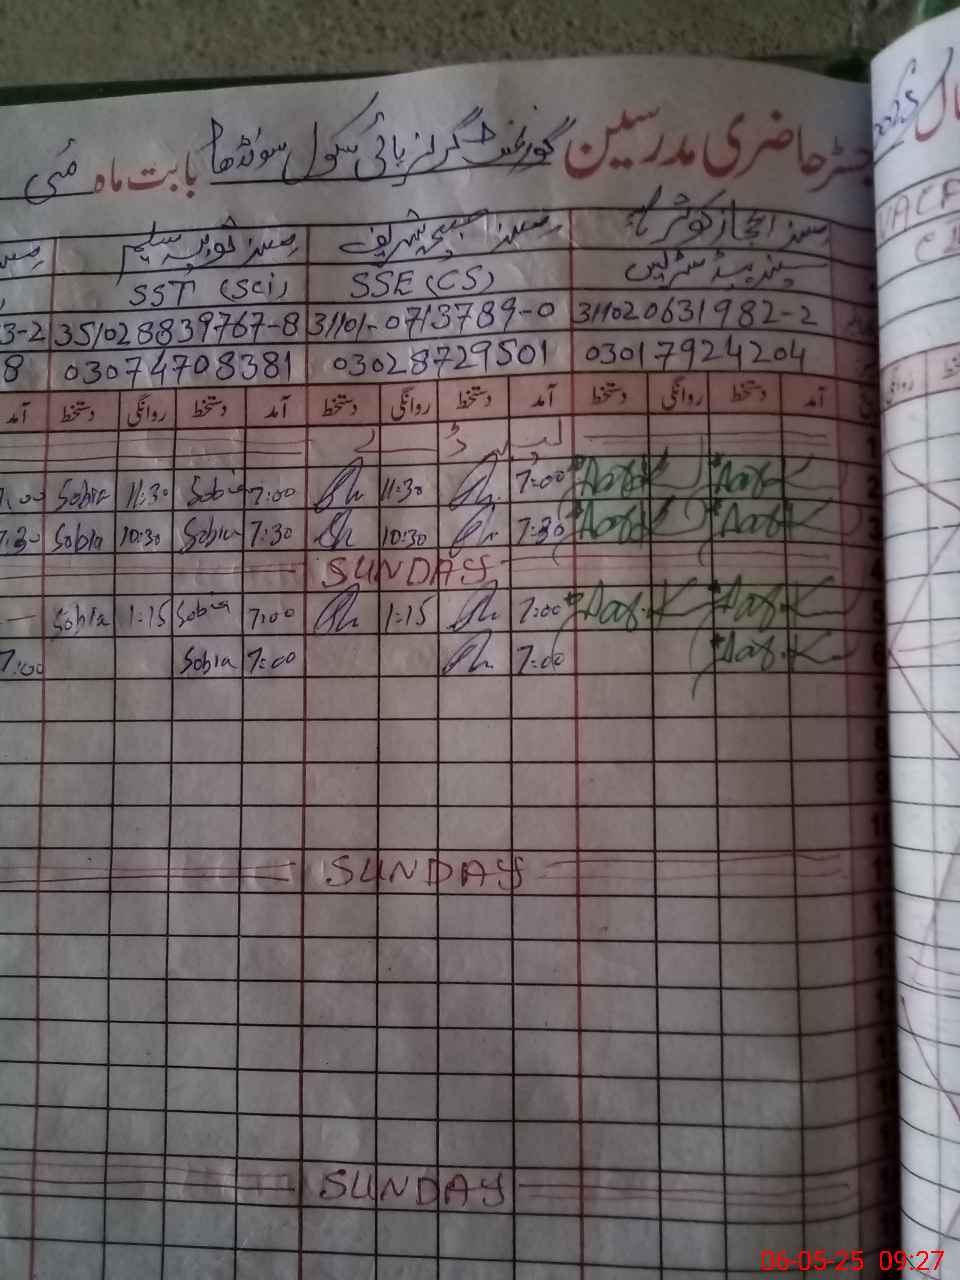 رجسٹر حاضری مدرسین گورنمنٹ گرلز ہائی سکول سونڈھا بابت ماہ مئی
2025
مسز اعجاز کوثر مسز شریف مسز ثوبیہ سلیم
سینئر ہیڈ مسٹریس SSE (CS) SST (Sci)
31102 0631982-2 31101-0713789-0 35102 8839767-8 3-2
03017924204 03028729501 03074708381 8
آمد دستخط روانگی دستخط آمد دستخط روانگی دستخط آمد دستخط روانگی دستخط آمد
لیبر ڈے
7:00 11:30 7:00 Sobia 11:30 Sobia 7:00
7:30 10:30 7:30 Sobia 10:30 Sobia 7:30
SUNDAY
7:00 1:15 7:00 Sobia 1:15 Sobia
7:00 7:00 Sobia 7:00
SUNDAY
SUNDAY
06-05-25 09:27